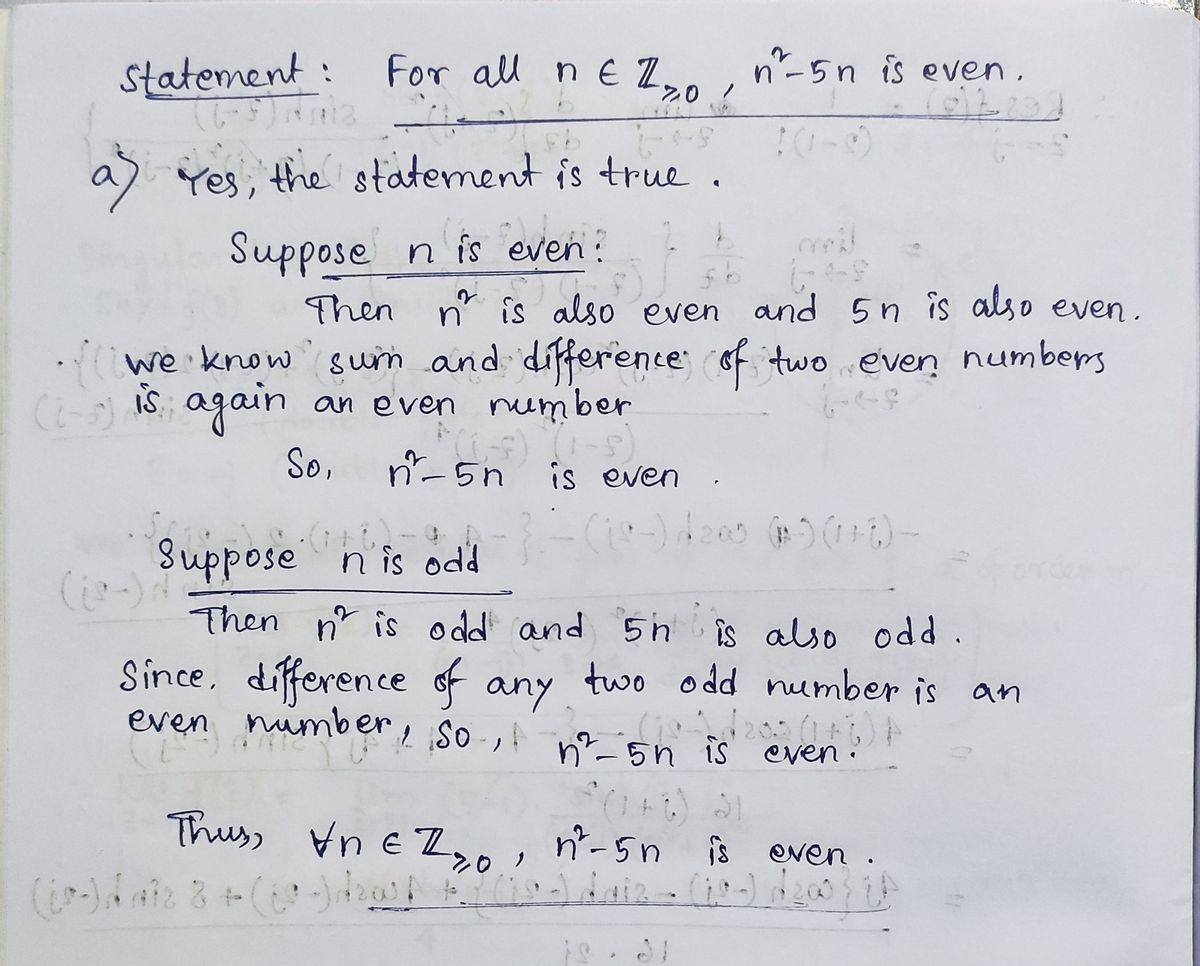 Statement : For all n ∈ ℤ≥0 , n²-5n is even.
a) Yes, the statement is true .
Suppose n is even :
Then n² is also even and 5n is also even.
we know sum and difference of two even numbers
is again an even number
So, n²-5n is even .
Suppose n is odd
Then n² is odd and 5n is also odd .
Since, difference of any two odd number is an
even number, so , n²-5n is even.
Thus, ∀n ∈ ℤ≥0 , n²-5n is even .